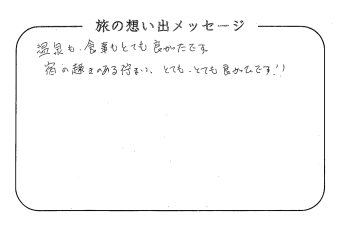 旅の想い出メッセージ
温泉も、食事もとても良かたです。
宿の趣きのある佇まい、とても、とても良かったです!!